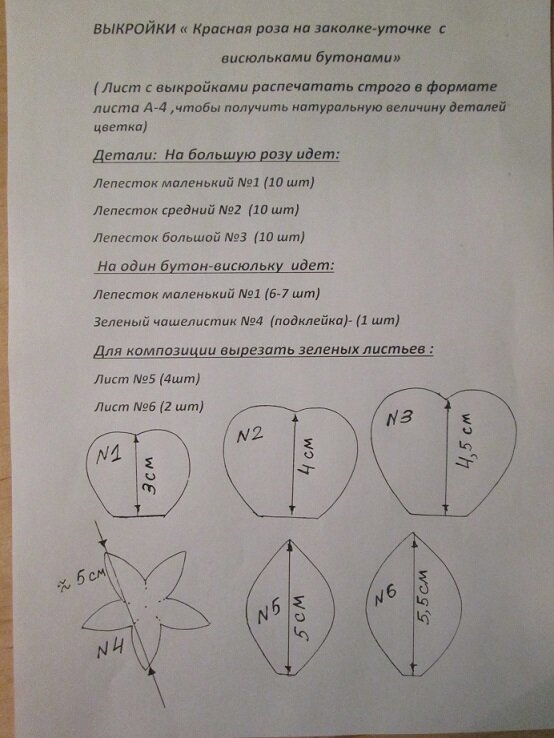 ВЫКРОЙКИ « Красная роза на заколке-уточке с
висюльками бутонами»
( Лист с выкройками распечатать строго в формате
листа А-4 ,чтобы получить натуральную величину деталей
цветка)
Детали: На большую розу идет:
Лепесток маленький №1 (10 шт)
Лепесток средний №2 (10 шт)
Лепесток большой №3 (10 шт)
На один бутон-висюльку идет:
Лепесток маленький №1 (6-7 шт)
Зеленый чашелистик №4 (подклейка)- (1 шт)
Для композиции вырезать зеленых листьев :
Лист №5 (4шт)
Лист №6 (2 шт)
N1
3см
N2
4 см
N3
4,5 см
≈ 5 см
N4
N5
5 см
N6
5,5см